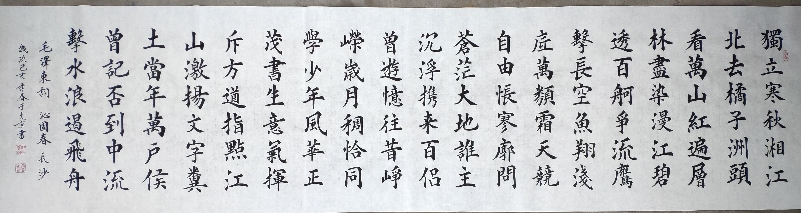 獨立寒秋湘江
北去橘子洲頭
看萬山紅遍層
林盡染漫江碧
透百舸爭流鷹
擊長空魚翔淺
底萬類霜天競
自由悵寥廓問
蒼茫大地誰主
沉浮携来百侶
曾遊憶往昔崢
嶸歲月稠恰同
學少年風華正
茂書生意氣揮
斥方遒指點江
山激揚文字糞
土當年萬戶侯
曾記否到中流
擊水浪遏飛舟
毛澤東詞 沁園春 長沙
歲次己亥年春于書